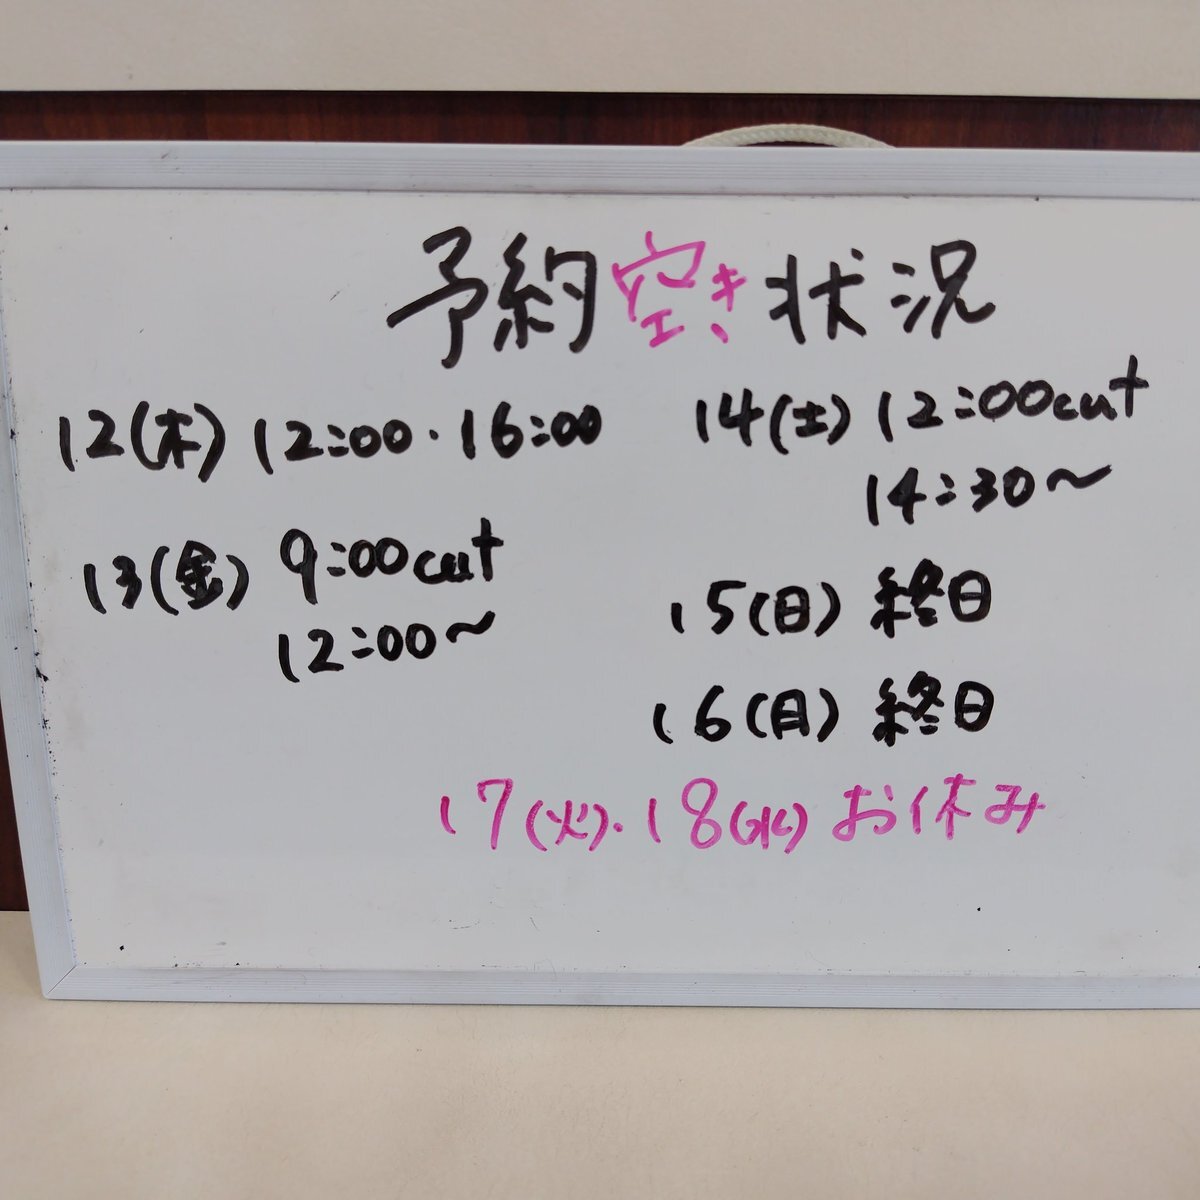 予約空き状況
12(木) 12:00・16:00
13(金) 9:00cut
12:00～
14(土) 12:00cut
14:30～
15(日) 終日
16(月) 終日
17(火)・18(水) お休み